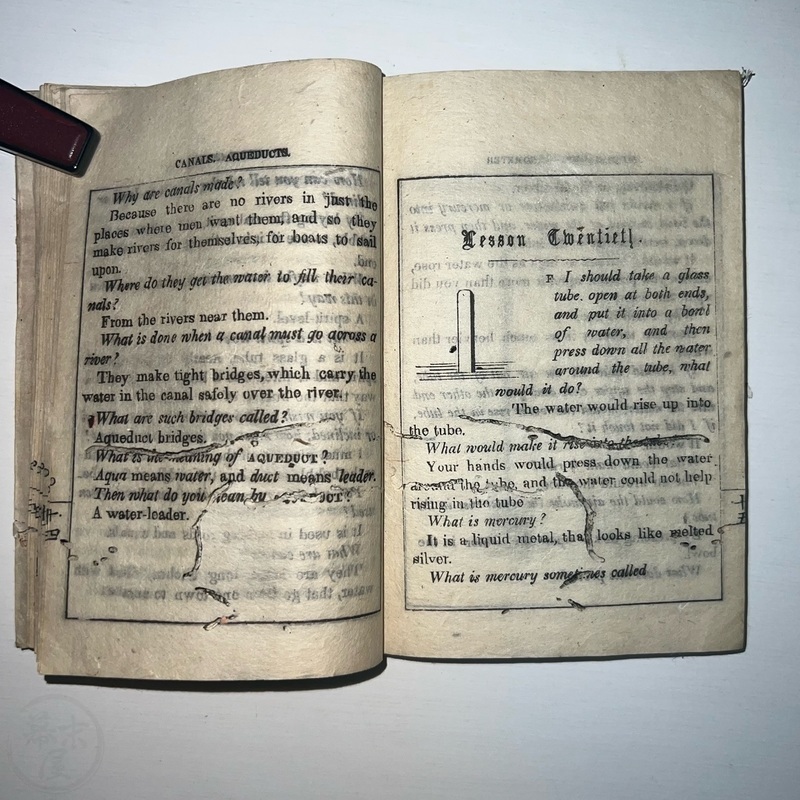 CANALS. AQUEDUCTS.
Why are canals made?
Because there are no rivers in just the
places where men want them, and so they
make rivers for themselves, for boats to sail
upon.
Where do they get the water to fill their ca-
nals?
From the rivers near them.
What is done when a canal must go across a
river?
They make tight bridges, which carry the
water in the canal safely over the river.
What are such bridges called?
Aqueduct bridges.
What is the meaning of AQUEDUCT?
Aqua means water, and duct means leader.
Then what do you mean by
A water-leader.
Lesson Twentieth.
F I should take a glass
tube. open at both ends,
and put it into a bowl
of water, and then
press down all the water
around the tube, what
would it do?
The water would rise up into
the tube.
What would make it rise
Your hands would press down the water
around the tube, and the water could not help
rising in the tube
What is mercury?
It is a liquid metal, that looks like melted
silver.
What is mercury sometimes called